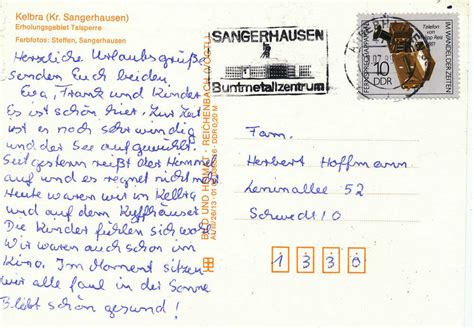 Kelbra (Kr. Sangerhausen)
Erholungsgebiet Talsperre
Farbfotos: Steffen, Sangerhausen
Herzliche Urlaubsgrüße
senden Euch beiden
Eva, Frantz und Kinder
Es ist schön hier. Zur Zeit
ist es noch sehr windig
und der See aufgewühlt.
Seit gestern reißt der Himmel
auf und es regnet nicht mehr
Heute waren wir in Kelbra
und auf dem Kyffhäuser
Die Kinder fühlen sich wohl
Wir waren auch schon im
Kino. Im Moment sitzen
wir alle faul in der Sonne
Bleibt schön gesund!
BILD UND HEIMAT · REICHENBACH (VOGTL)
SANGERHAUSEN
Buntmetallzentrum
FERNSPRECHAPPARATE
IM WANDEL DER ZEITEN
Telefon von
10
DDR
Fam.
Herbert Hoffmann
Leninallee 52
Schwedt/O
1330